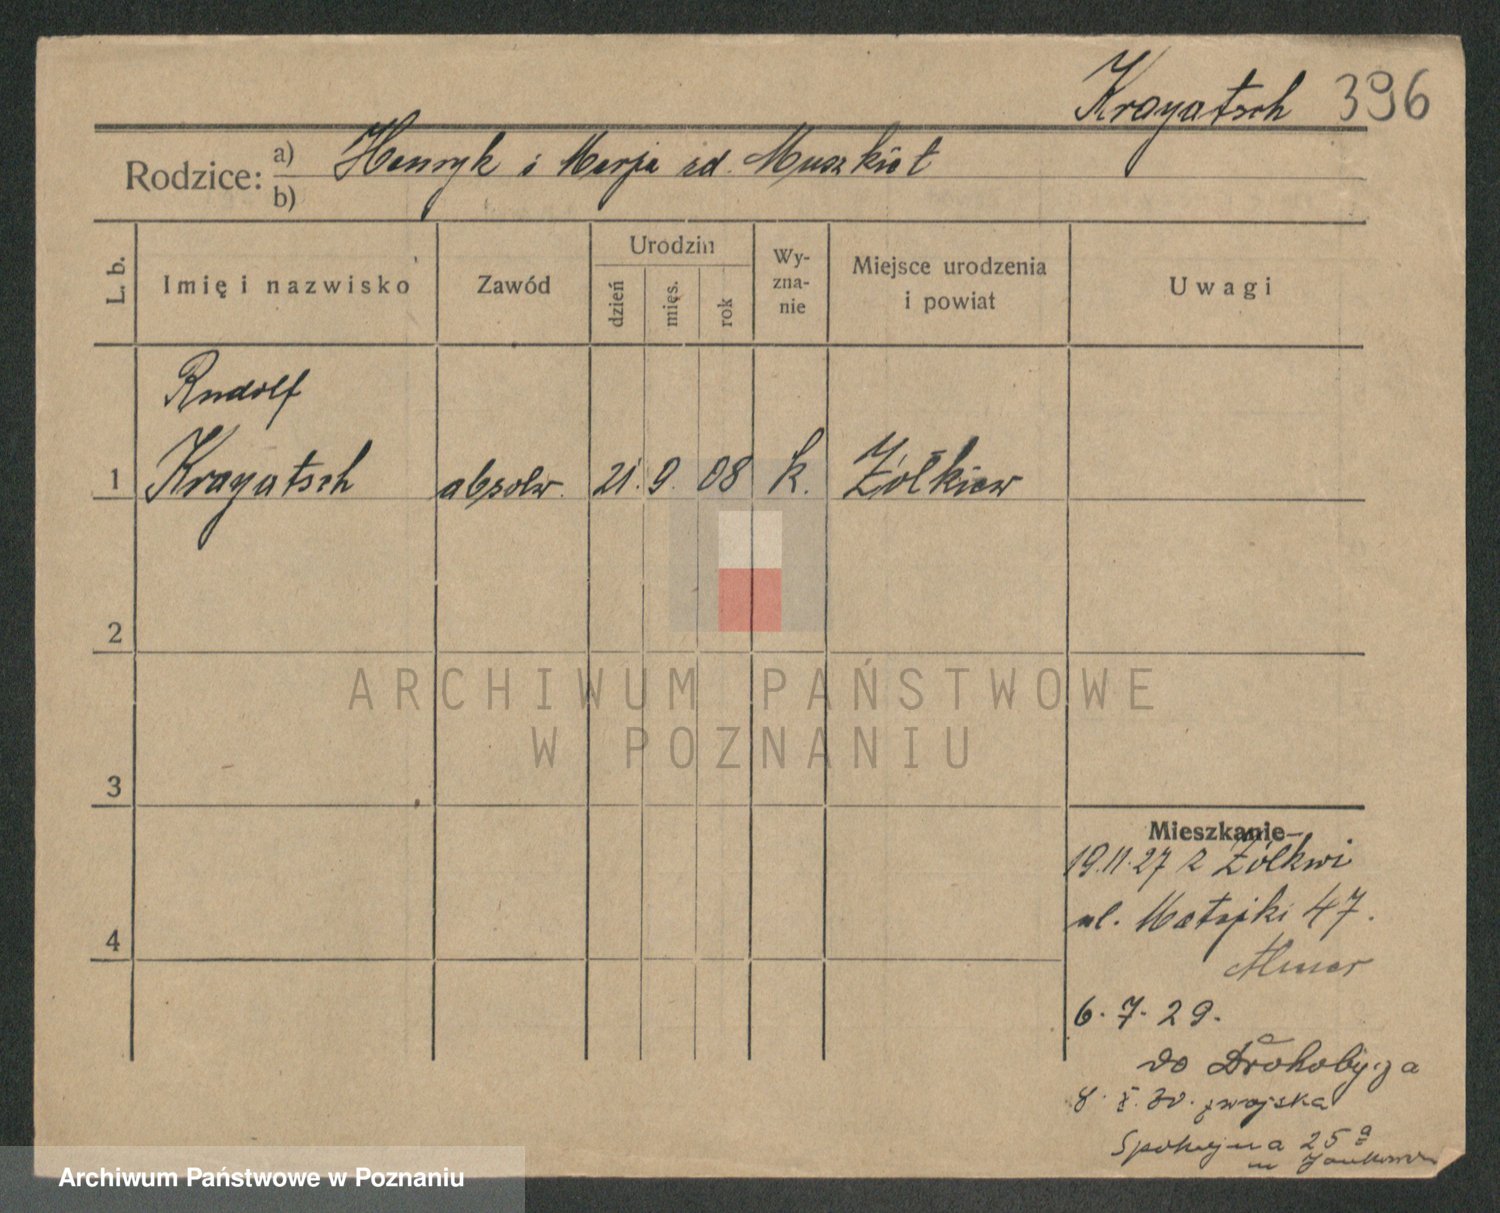 Krayatsch 396
Rodzice: a) Henryk i Marja zd. Muszkiet
b)
L. b. Imię i nazwisko Zawód Urodzin dzień mięs. rok Wy-zna-nie Miejsce urodzenia i powiat Uwagi
Rudolf
1 Krayatsch absolw. 21. 9. 08 k. Żółkiew
2
ARCHIWUM PAŃSTWOWE
W POZNANIU
3
Mieszkanie
19.11.27 z Żółkwi
4 ul. Matejki 47.
6. 7. 29.
do Drohobycza
8. X. 30. z wojska
Spokojna 25a
Archiwum Państwowe w Poznaniu